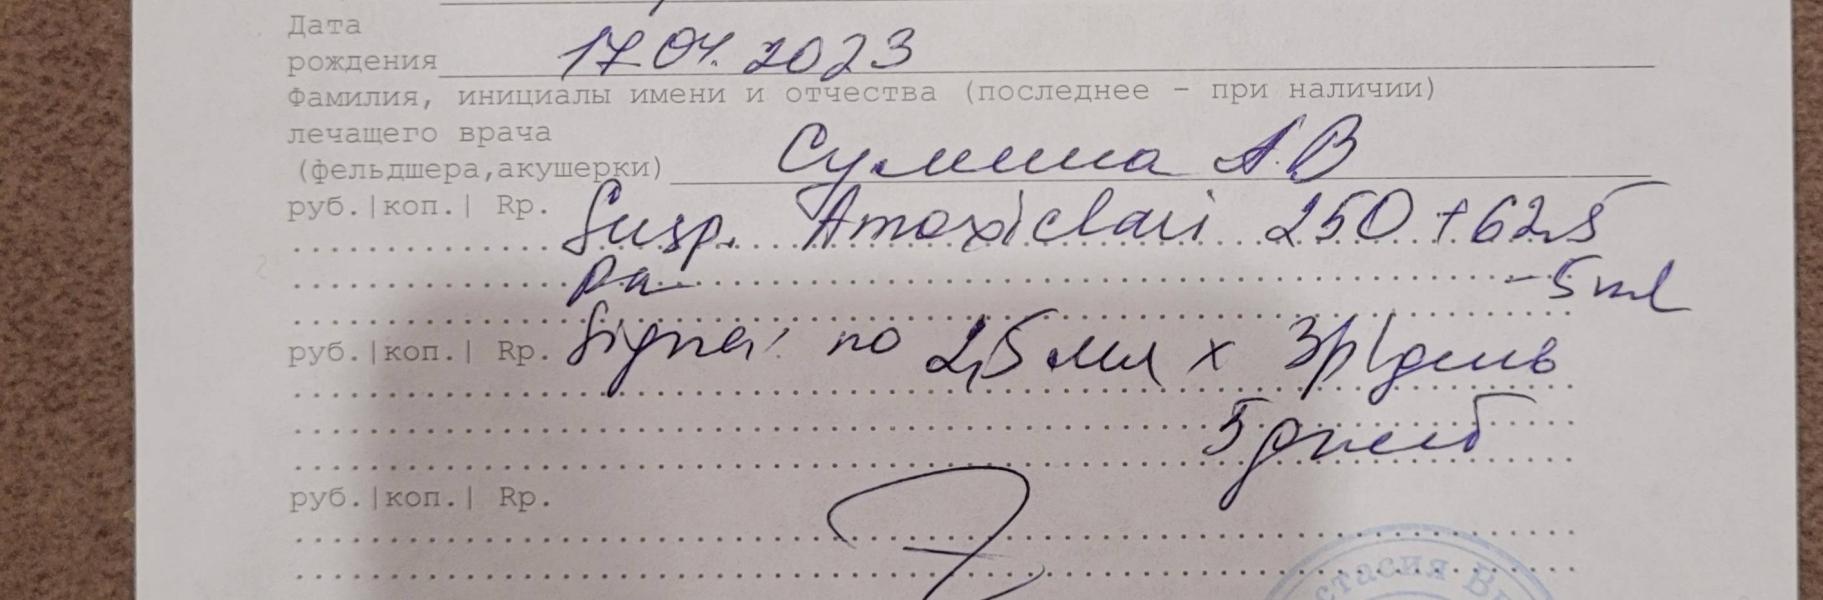 Дата
рождения 17.04.2023
Фамилия, инициалы имени и отчества (последнее - при наличии)
лечащего врача
(фельдшера,акушерки) А.В
руб.|коп.| Rp. Susp. Amoxiclavi 250 + 62,5
- 5 ml
руб.|коп.| Rp. Signa: по 2,5 мл х 3р/день
5 дней
руб.|коп.| Rp.